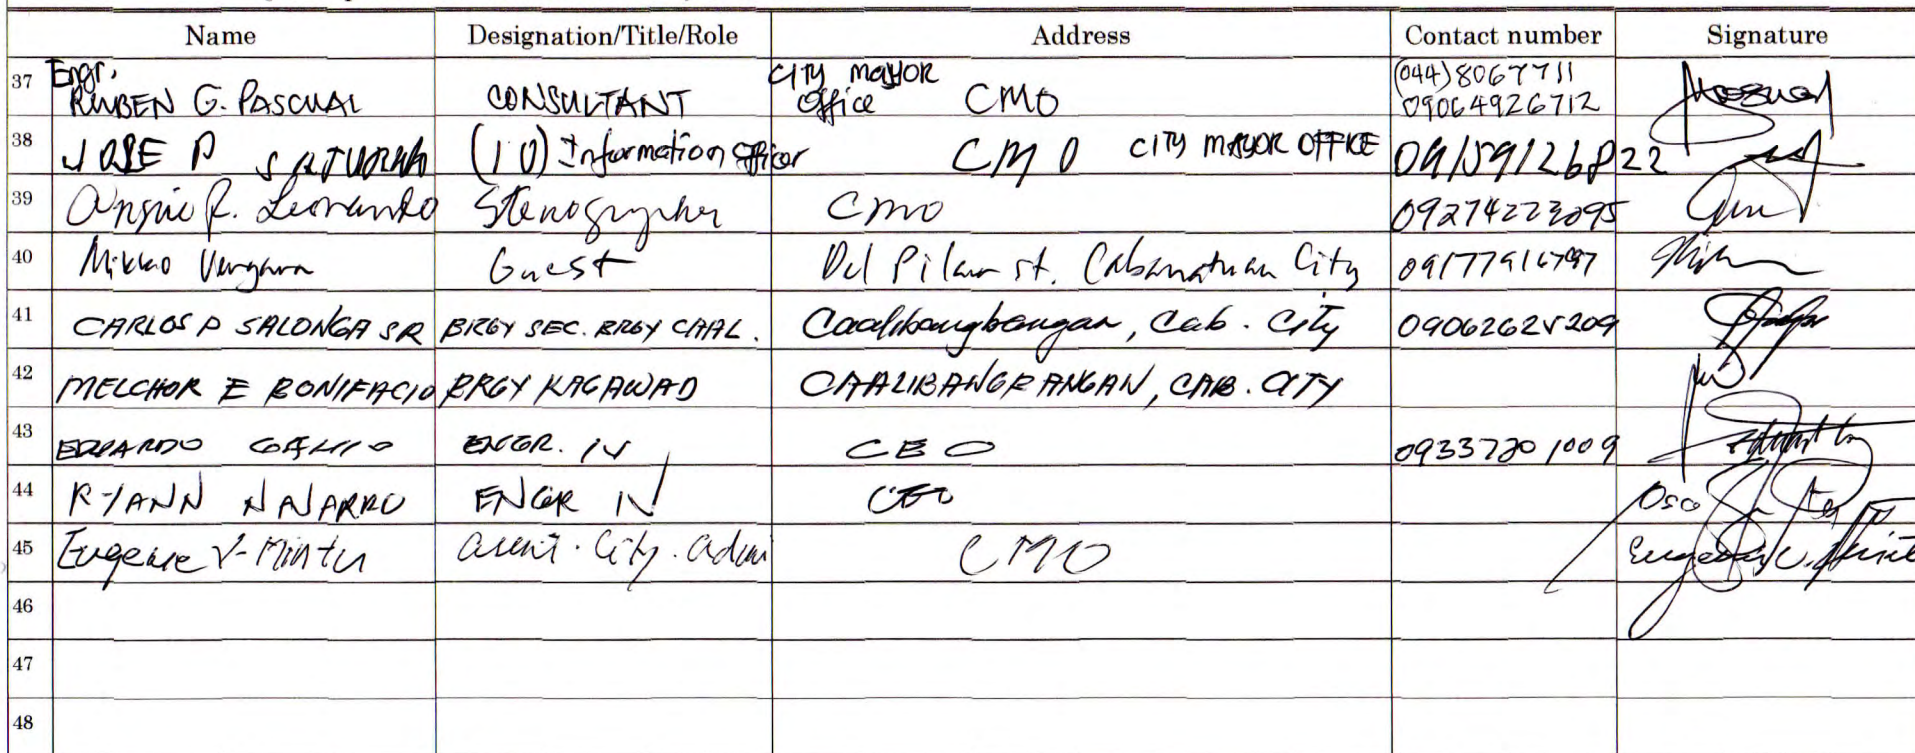 Name Designation/Title/Role Address Contact number Signature
37 Engr. RUBEN G. PASCUAL CONSULTANT CITY MAYOR Office CMO (044)8067711 09064926712
38 JOSE P (IO) Information Officer CMO CITY MAYOR OFFICE
39 Angie R. Leonardo Stenographer CMO 09274223095
40 Mikko Vergara Guest Del Pilar st. Cabanatuan City
41 CARLOS P SALONGA SR BRGY SEC. BRGY CAAL. Caalibangbangan, Cab. City
42 MELCHOR E BONIFACIO BRGY KAGAWAD CAALIBANGBANGAN, CAB. CITY
43 EDUARDO ENGR. IV CEO
44 RYANN NAVARRO ENGR IV CEO
45 Eugene V. Mintu City. CMO
46
47
48